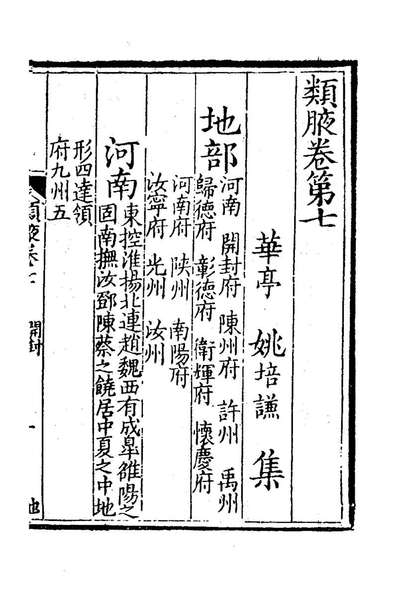 類腋卷第七
華亭 姚培謙 集
地部
河南 開封府 陳州府 許州 禹州
歸德府 彰德府 衛輝府 懷慶府
河南府 陝州 南陽府
汝寧府 光州 汝州
河南
東控淮揚北連趙魏西有成皋雒陽之
固南撫汝鄧陳蔡之饒居中夏之中地
形四達領
府九州五
類腋卷七 開封 一 地